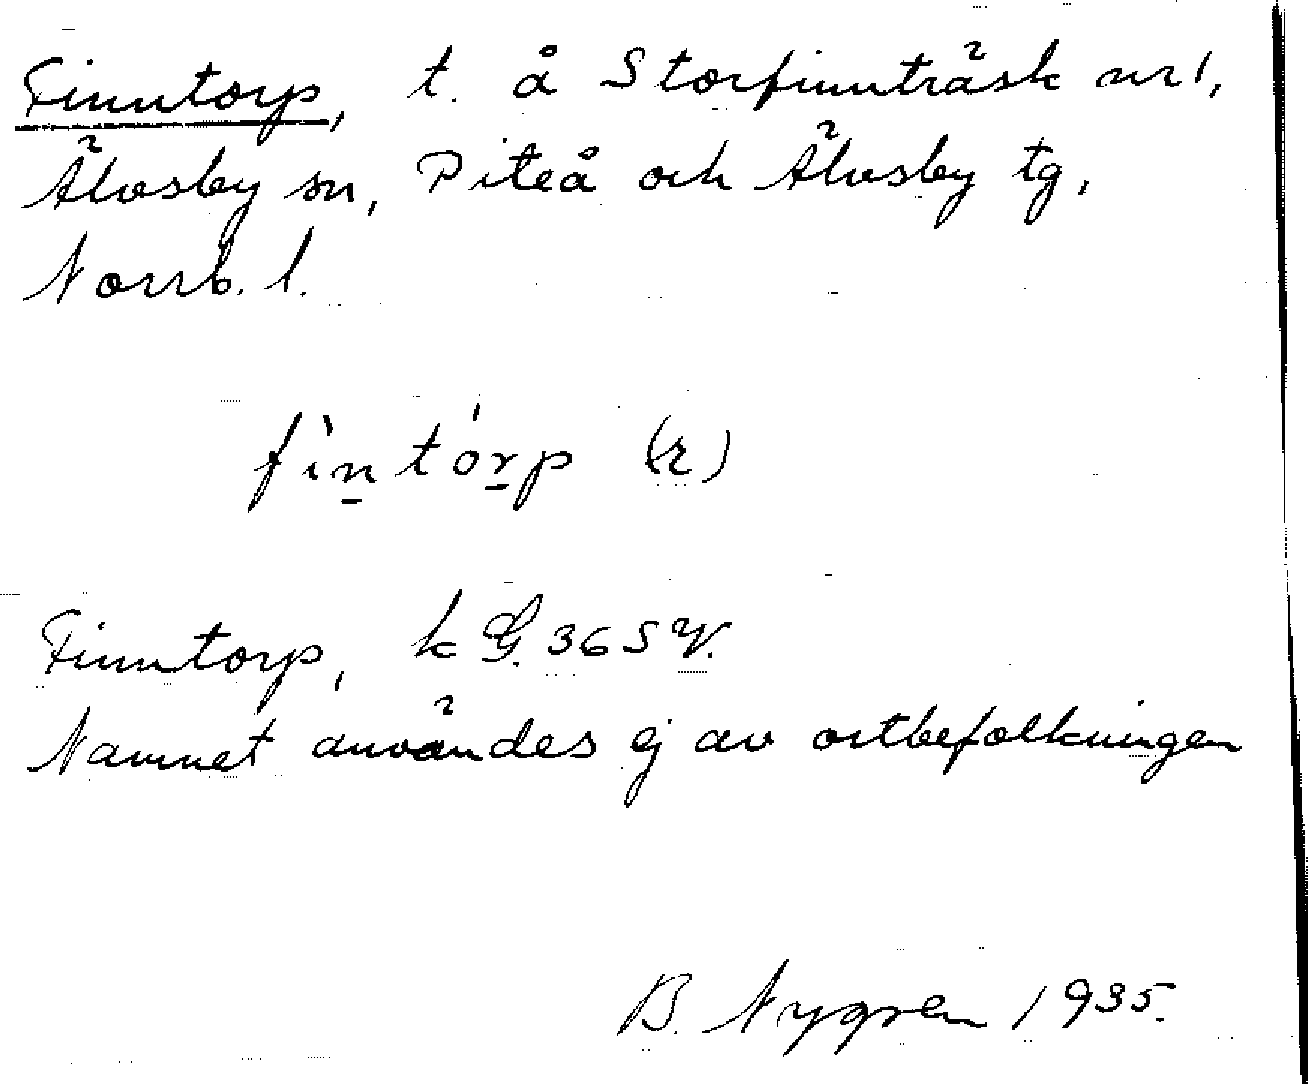 Finntorp, t. å Storfinnträsk nr 1,
Älvsby sn, Piteå och Älvsby tg,
Norrb. l.
fìn̠tór̠p (r)
Finntorp, k G. 365 V.
Namnet användes ej av ortbefolkningen
B. Nygren 1935.